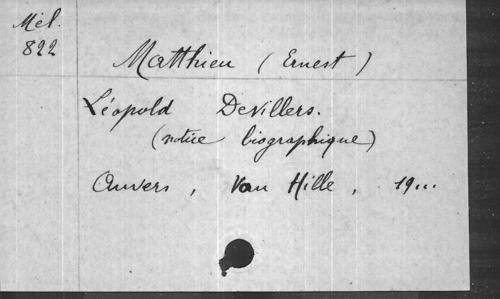 Mél.
822
Matthieu (Ernest)
Léopold Devillers.
(notice biographique)
Anvers, Van Hille, 19...